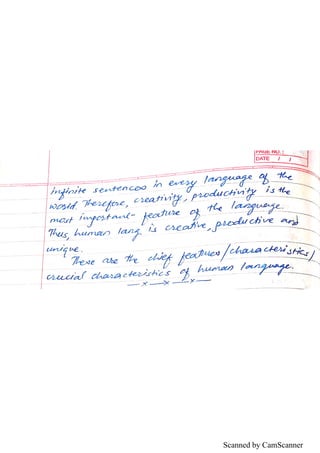 PAGE NO.:
DATE / /
infinite sentences in every language of the
world. Therefore, creativity, productivity is the
most important feature of the language.
Thus, human lang. is creative, productive and
unique.
These are the chief features/characteristics/
crucial characteristics of human language.
—x—x—x—
Scanned by CamScanner